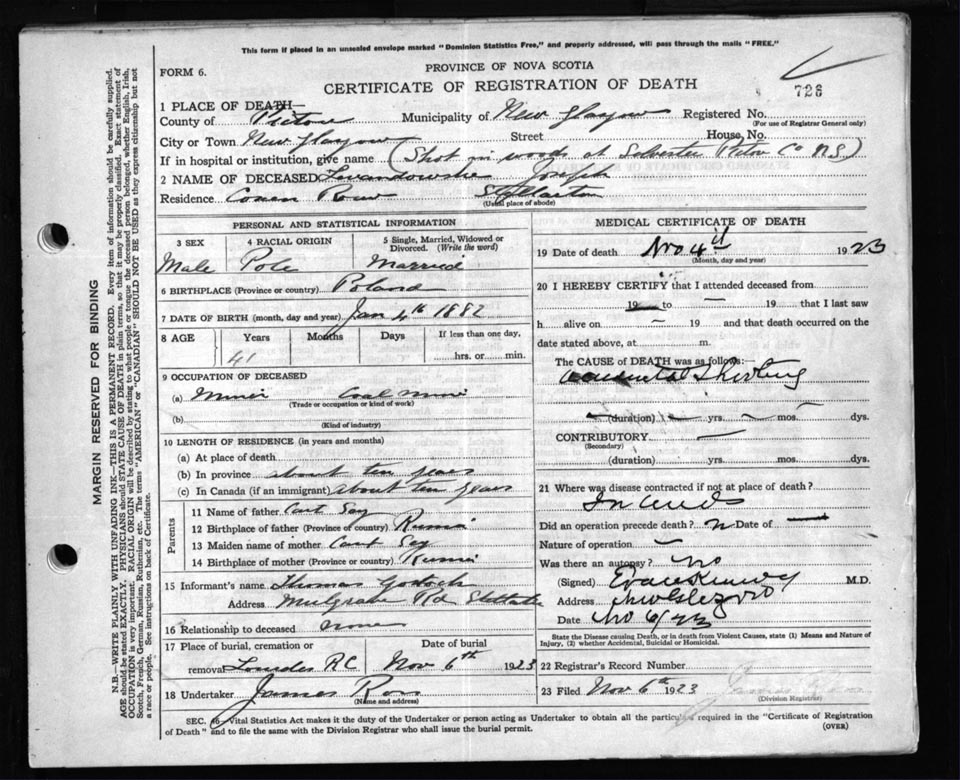 This form if placed in an unsealed envelope marked "Dominion Statistics Free," and properly addressed, will pass through the mails "FREE."
FORM 6.
PROVINCE OF NOVA SCOTIA
CERTIFICATE OF REGISTRATION OF DEATH
726
1 PLACE OF DEATH—
County of Pictou Municipality of New Glasgow Registered No.
(For use of Registrar General only)
City or Town New Glasgow Street House, No.
If in hospital or institution, give name (Shot in woods at Co N.S)
2 NAME OF DECEASED Joseph
Residence Row Stellarton
(Usual place of abode)
PERSONAL AND STATISTICAL INFORMATION
3 SEX
Male
4 RACIAL ORIGIN
Pole
5 Single, Married, Widowed or Divorced. (Write the word)
Married
6 BIRTHPLACE (Province or country) Poland
7 DATE OF BIRTH (month, day and year) Jan 4th 1882
8 AGE Years Months Days If less than one day,
41 hrs. or min.
9 OCCUPATION OF DECEASED
(a) Miner Coal mine
(Trade or occupation or kind of work)
(b)
(Kind of industry)
10 LENGTH OF RESIDENCE (in years and months)
(a) At place of death
(b) In province about ten years
(c) In Canada (if an immigrant) about ten years
Parents
11 Name of father Cant Say
12 Birthplace of father (Province of country)
13 Maiden name of mother Cant Say
14 Birthplace of mother (Province of country)
15 Informant's name Thomas
Address Rd
16 Relationship to deceased none
17 Place of burial, cremation or removal Lourdes RC
Date of burial
Nov 6th 1923
18 Undertaker James Ross
(Name and address)
MEDICAL CERTIFICATE OF DEATH
19 Date of death Nov 4th 1923
(Month, day and year)
20 I HEREBY CERTIFY that I attended deceased from
19 to 19 that I last saw
h alive on 19 and that death occurred on the
date stated above, at m.
The CAUSE of DEATH was as follows:—
Accidental Shooting
(duration) yrs. mos. dys.
CONTRIBUTORY
(Secondary)
(duration) yrs. mos. dys.
21 Where was disease contracted if not at place of death?
In woods
Did an operation precede death? No Date of
Nature of operation
Was there an autopsy? no
(Signed) M.D.
Address
Date Nov 6/23
State the Disease causing Death, or in death from Violent Causes, state (1) Means and Nature of
Injury, (2) whether Accidental, Suicidal or Homicidal.
22 Registrar's Record Number
23 Filed Nov 6th 1923
(Division Registrar)
SEC. 46 Vital Statistics Act makes it the duty of the Undertaker or person acting as Undertaker to obtain all the particulars required in the "Certificate of Registration
of Death" and to file the same with the Division Registrar who shall issue the burial permit.
(OVER)
MARGIN RESERVED FOR BINDING
N.B.—WRITE PLAINLY WITH UNFADING INK—THIS IS A PERMANENT RECORD. Every item of information should be carefully supplied.
AGE should be stated EXACTLY. PHYSICIANS should STATE CAUSE OF DEATH in plain terms, so that it may be properly classified. Exact statement of
OCCUPATION is very important. RACIAL ORIGIN will be described by stating to what people or tongue the deceased person belonged, whether English, Irish,
Scotch, French, German, Russian, Ruthenian, etc. The terms "AMERICAN" or "CANADIAN" SHOULD NOT BE USED as they express citizenship but not
a race or people. See instructions on back of Certificate.